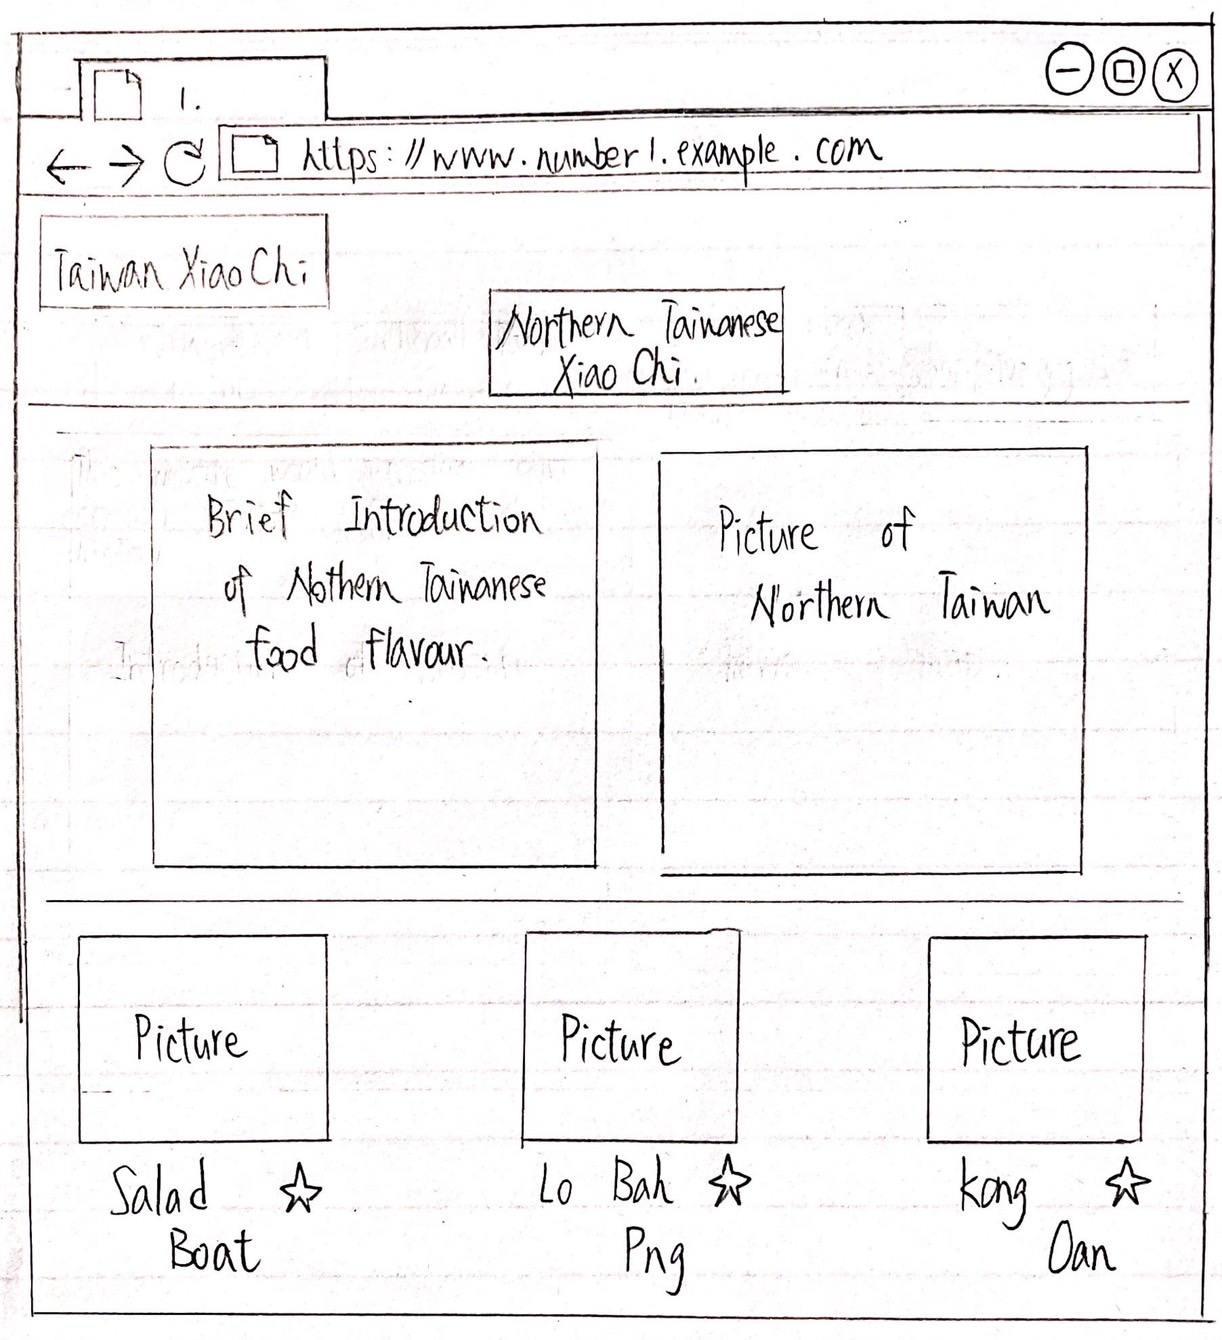 1.
https://www.number1.example.com
Taiwan Xiao Chi
Northern Taiwanese
Xiao Chi.
Brief Introduction
of Nothern Taiwanese
food flavour.
Picture of
Northern Taiwan
Picture
Picture
Picture
Salad
Boat
Lo Bah
Png
Kong
Oan